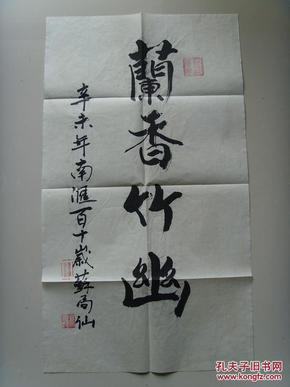 蘭香竹幽
辛未年南滙百十歲蘇局仙
孔夫子旧书网